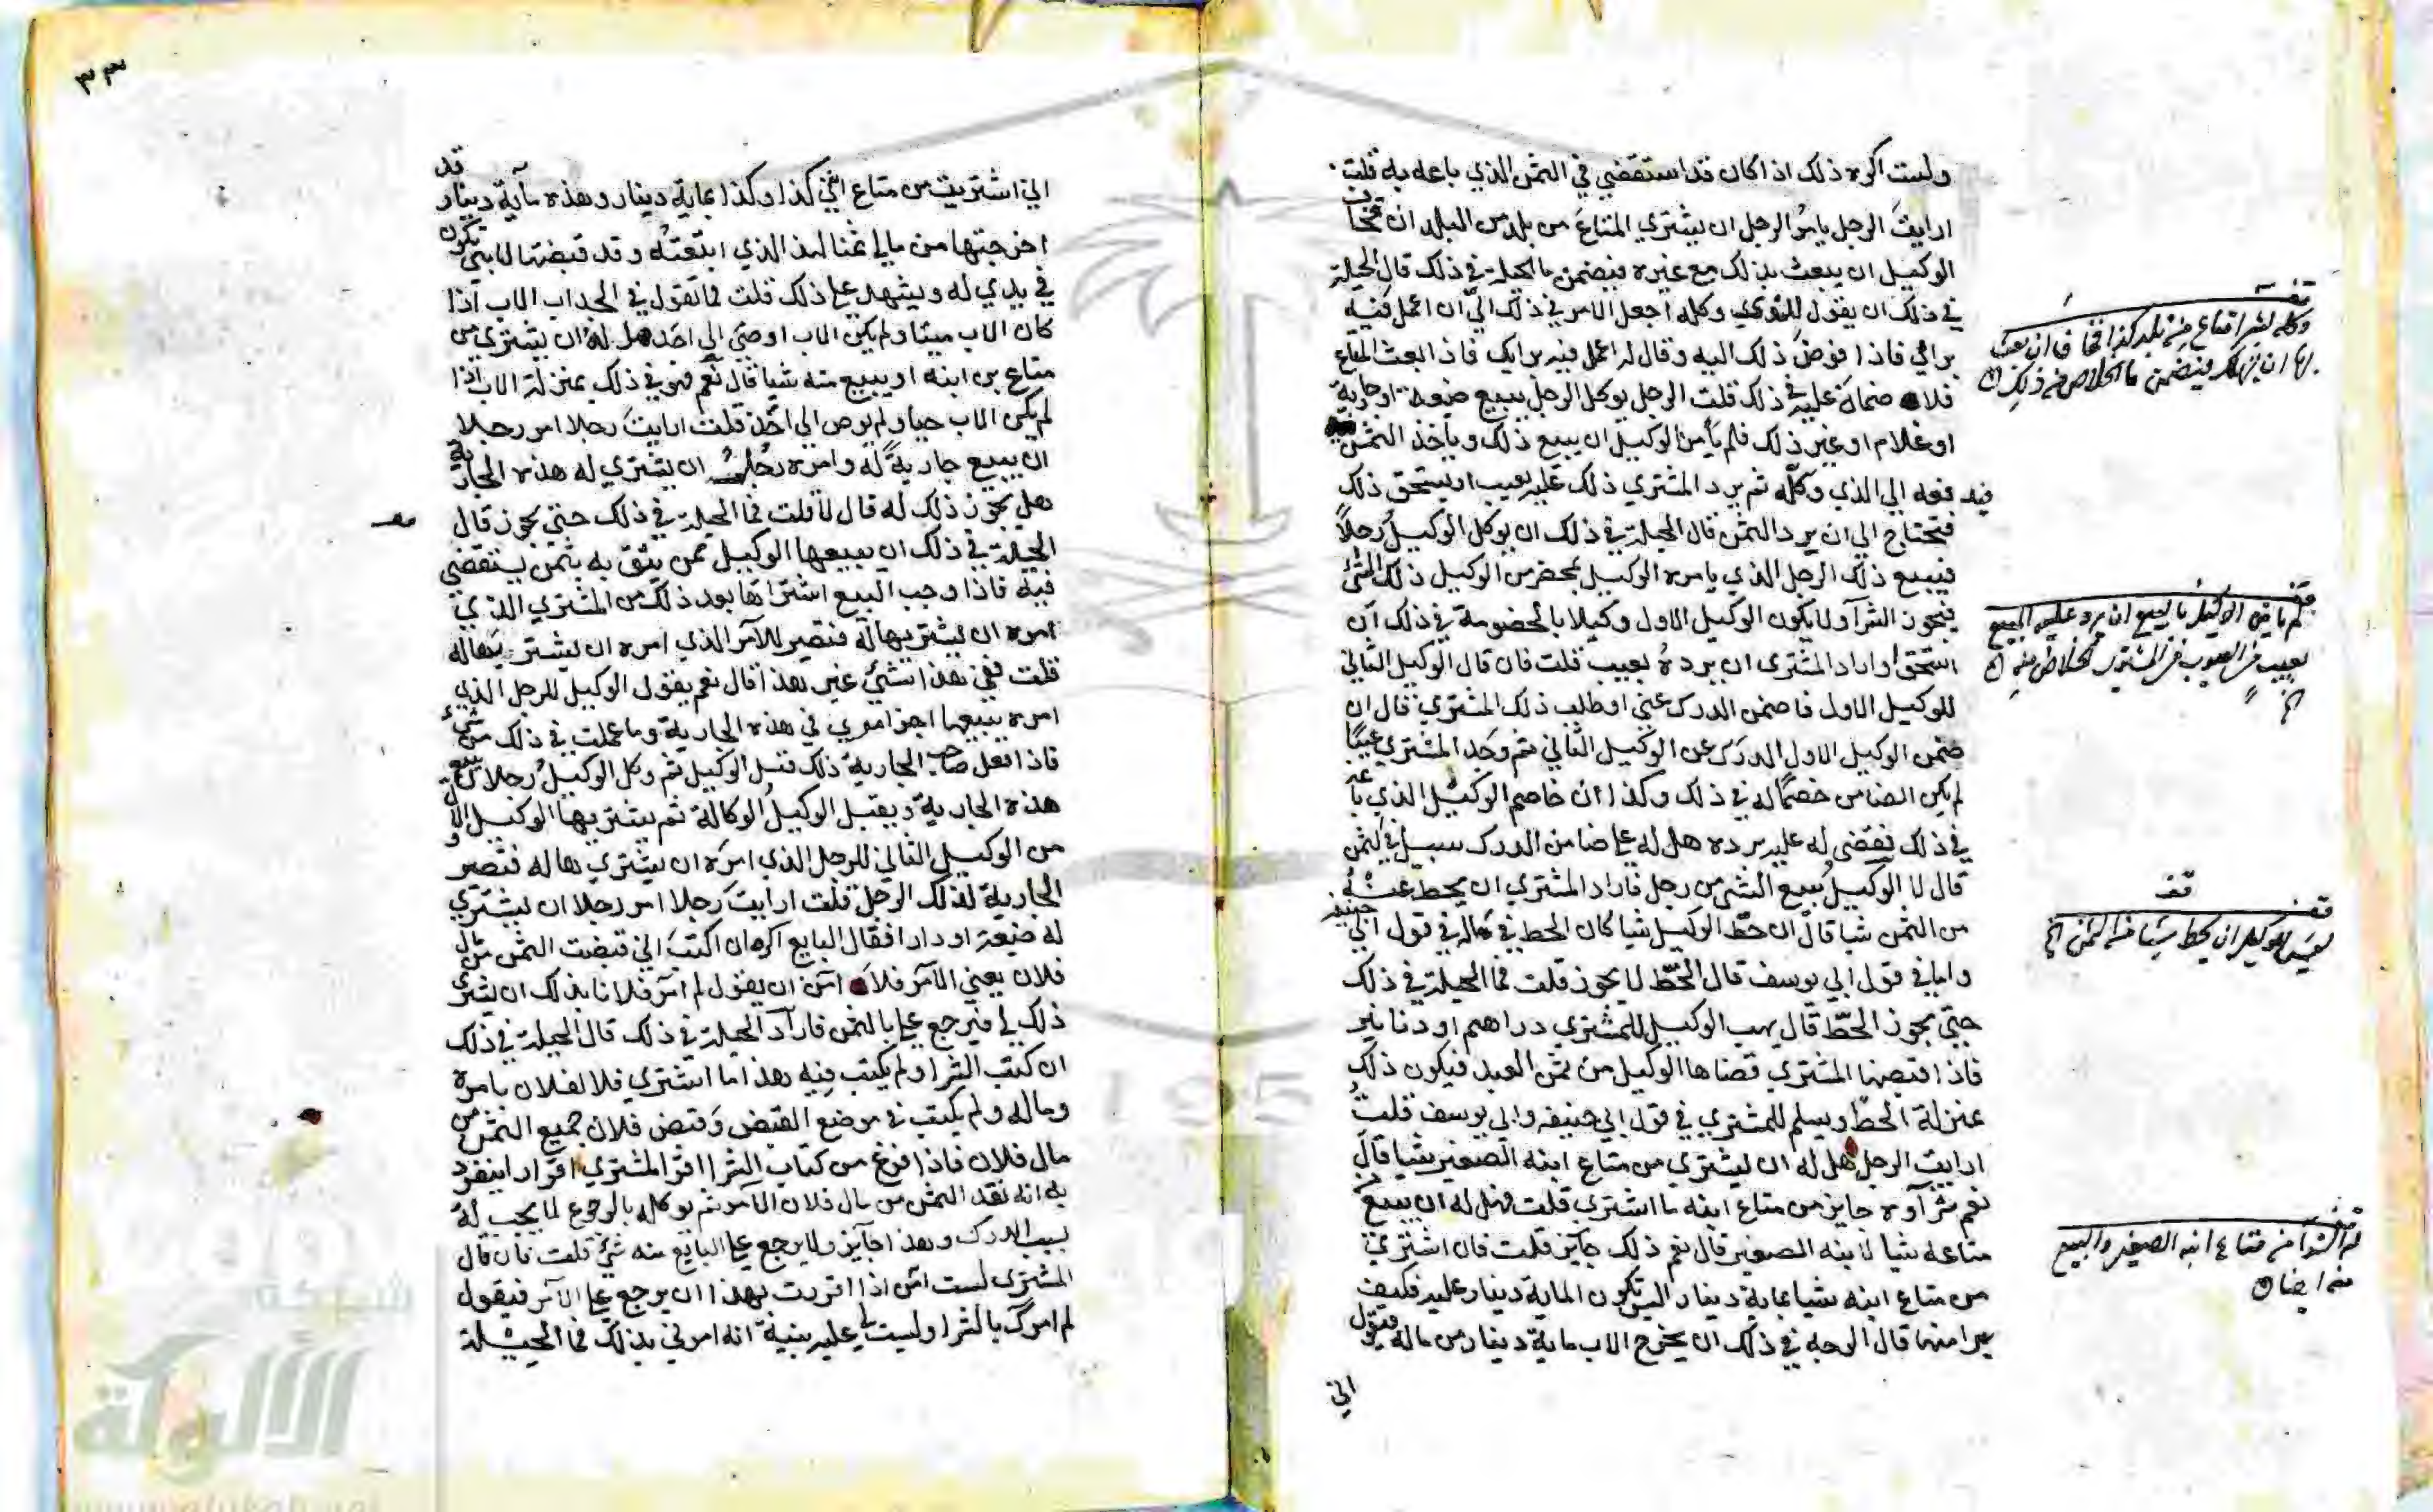 ولست اكره ذلك اذا كان قد استقضي في الثمن الذي باعه به قلت
ارايت الرجل يامر الرجل ان يشتري المتاع من بلد من البلدان فخاف
الوكيل ان يبعث بذلك مع غيره فيضمن ما الحيلة في ذلك قال الحيلة
في ذلك ان يقول للذي وكله اجعل الامر في ذلك الي ان اعمل فيه
براي فاذا فوض ذلك اليه وقال له اعمل فيه برايك فاذا بعث المتاع
فلا ضمان عليه في ذلك قلت الرجل يوكل الرجل ببيع ضيعة او جارية
او غلام او غير ذلك فلم يأمن الوكيل ان يبيع ذلك وياخذ الثمن
فيدفعه الى الذي وكله ثم يرد المشتري ذلك عليه بعيب او يستحق ذلك
فتحتاج الى ان يرد الثمن قال الحيلة في ذلك ان يوكل الوكيل رجلا
فيبيع ذلك الرجل الذي يامره الوكيل بمحضر من الوكيل ذلك الشئ
فيجوز الشرآ ولا يكون الوكيل الاول وكيلا بالخصومة في ذلك ان
استحق او اراد المشتري ان يرده بعيب قلت فان قال الوكيل الثاني
للوكيل الاول فاضمن الدرك عني او طلب ذلك المشتري قال ان
ضمن الوكيل الاول الدرك عن الوكيل الثاني ثم وجد المشتري عيبا
لم يكن الضامن خصما له في ذلك وكذا ان خاصم الوكيل الذي باعه
في ذلك فقضى له عليه برده هل له على ضامن الدرك سبيل في الثمن
قال لا الوكيل يبيع الشئ من رجل فاراد المشتري ان يحط عنه
من الثمن شيا قال ان حط الوكيل شيا كان الحط في ماله في قول ابي حنيفه
واما في قول ابي يوسف قال الحط لا يجوز قلت فما الحيلة في ذلك
حتى يجوز الحط قال يهب الوكيل للمشتري دراهم او دنانير
فاذا اقبضها المشتري قضاها الوكيل من ثمن العبد فيكون ذلك
بمنزلة الحط ويسلم للمشتري في قول ابي حنيفه وابي يوسف قلت
ارايت الرجل هل له ان يشتري من متاع ابنه الصغير شيا قال
نعم شرآوه جايز من متاع ابنه ما اشتري قلت فهل له ان يبيع من
متاعه شيا لابنه الصغير قال نعم ذلك جائز قلت فان اشترى
من متاع ابنه شيا بماية دينار اليس تكون الماية دينار عليه فكيف
يبرا منها قال الوجه في ذلك ان يخرج الاب ماية دينار من ماله فيقول
اني
قف
وكله بشرا متاع من بلد كذا فخاف ان بعث
بها ان يهلك فيضمن ما الخلاص من ذلك
قف
لم يامن الوكيل بالبيع ان يرد عليه المبيع
بعيب من العيوب من المشتري الخلاص منه
قف
ليس للوكيل ان يحط شيا من الثمن
قف
له الشرا من متاع ابنه الصغير والبيع
منه ايضا
٣٣
اني اشتريت من متاع ابني كذا وكذا بماية دينار وهذه ماية دينار قد
اخرجتها من مالي ثمنا لهذا الذي ابتعته وقد قبضتها لابني تكون
في يدي له ويشهد على ذلك قلت فما تقول في الجد اب الاب اذا
كان الاب ميتا ولم يكن الاب اوصى الى احد هل له ان يشتري من
متاع بن ابنه او يبيع منه شيا قال نعم هو في ذلك بمنزلة الاب اذا
لم يكن الاب حيا ولم يوص الى احد قلت ارايت رجلا امر رجلا
ان يبيع جارية له وامره رجل ان يشتري له هذه الجارية
هل يجوز ذلك له قال لا قلت فما الحيلة في ذلك حتى يجوز قال
الحيلة في ذلك ان يبيعها الوكيل ممن يثق به بثمن يستقضي
فيه فاذا وجب البيع اشتراها بعد ذلك من المشتري الذي
امره ان يشتريها له فتصير للآمر الذي امره ان يشتريها له
قلت ففي هذا شئ غير هذا قال نعم يقول الوكيل للرجل الذي
امره ببيعها اجز امري في هذه الجارية وما عملت في ذلك من شيء
فاذا فعل صاحب الجارية ذلك قبل الوكيل ثم وكل الوكيل رجلا يبيع
هذه الجارية ويقبل الوكيل الوكالة ثم يشتريها الوكيل الاول
من الوكيل الثاني للرجل الذي امره ان يشتريها له فتصير
الجارية لذلك الرجل قلت ارايت رجلا امر رجلا ان يشتري
له ضيعة او دارا فقال البايع اكره ان اكتب اني قبضت الثمن من مال
فلان يعني الآمر فلا آمن ان يقول لم آمر فلانا بذلك ان يشتري
ذلك لي فيرجع علي بالثمن فاراد الحيلة في ذلك قال الحيلة في ذلك
ان كتب الشرا ولم يكتب فيه هذا ما اشتري فلا لفلان بامره
وماله ولم يكتب في موضع القبض وقبض فلان جميع الثمن من
مال فلان فاذا فرغ من كتاب الشرا اقر المشتري اقرارا ينفرد
به انه نقد الثمن من مال فلان الآمر ثم يوكله بالرجوع لما يجب له
بسبب الدرك وهذا جآئز ولا يرجع على البايع منه شئ قلت فان قال
المشتري لست آمن اذا اقررت بهذا ان يرجع على الآمر فيقول
لم آمرك بالشرا وليست لي عليه بينة انه امرني بذلك فما الحيلة
شبكة
الألوكة
www.alukah.net
195